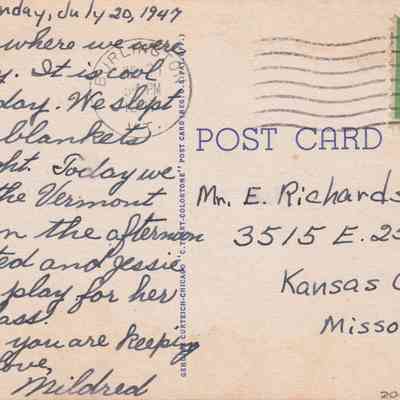 nday, July 20, 1947
where we were
y. It is cool
day. We slept
blankets
ght. Today we
the Vermont
n the afternoon
ted and Jessie
play for her
ass.
you are keeping
love,
Mildred
BURLINGTON
PM
VT.
GENUINE CURTEICH-CHICAGO "C.T. ART-COLORTONE" POST CARD (REG. U.S. PAT. OFF.)
POST CARD
Mr. E. Richards
3515 E. 25
Kansas C
Misso
20